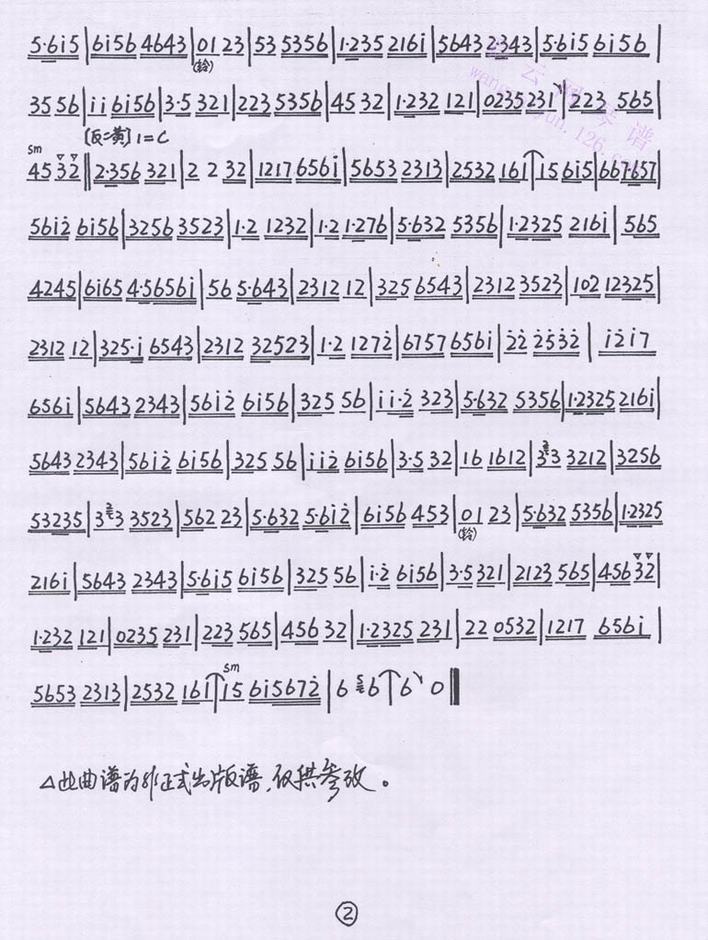 5·6i5|6i56 4643|01 23|53 5356|1·235 216i|5643 2·343|5·6i5 6i56|
(铃)
35 56|ii 6i56|3·5 321|223 5356|45 32|1·232 121|0235 231|223 565|
[反二黄] 1=C
sm
45 32‖2·356 321|2 2 32|1217 656i|5653 2313|2532 161|15 6i5|667·657|
56i2̇ 6i56|3256 3523|1·2 1232|1·2 1·276|5·632 5356|1·2325 216i|565
4245|6i65 4·5656i|56 5·643|2312 12|325 6543|2312 3523|102 12325|
2312 12|325·i 6543|2312 32523|1·2 1272̇|6757 656i|2̇2̇ 2̇5̇3̇2̇|i2̇i7
656i|5643 2343|56i2̇ 6i56|325 56|ii·2̇ 323|5·632 5356|1·2325 216i|
5643 2343|56i2̇ 6i56|325 56|ii2̇ 6i56|3·5 32|16 1612|33 3212|3256
53235|33 3523|562 23|5·632 5·6i2̇|6i56 453|01 23|5·632 5356|1·2325
(铃)
216i|5643 2343|5·6i5 6i56|325 56|i·2̇ 6i56|3·5 321|2123 565|456 32|
1·232 121|0235 231|223 565|456 32|1·2325 231|22 0532|1217 656i|
sm
5653 2313|2532 161|15 6i5672̇|6 6|6 0‖
△此曲谱为非正式出版谱，仅供参改。
②